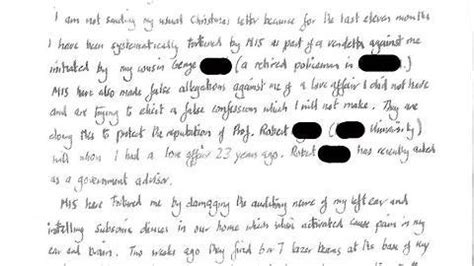 I am not sending my usual Christmas letter because for the last eleven months
I have been systematically tortured by MI5 as part of a vendetta against me
initiated by my cousin George (a retired policeman in .)
MI5 have also made false allegations against me of a love affair I did not have
and are trying to elicit a false confession which I will not make. They are
doing this to protect the reputation of Prof. Robert ( University)
with whom I had a love affair 23 years ago. Robert has recently acted
as a government advisor.
MI5 have tortured me by damaging the auditory nerve of my left ear and
installing subsonic devices in our home which when activated cause pain in my
ear and brain. Two weeks ago they fired 6 or 7 lazer beams at the base of my